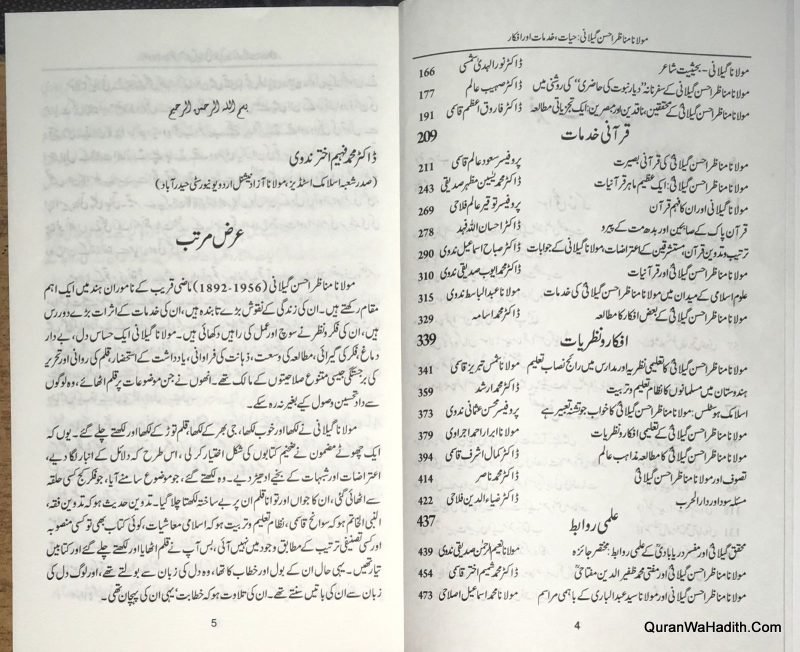 مولانا مناظر احسن گیلانی: حیات، خدمات اور افکار
مولانا گیلانی - بحیثیت شاعر ڈاکٹر نورالہدیٰ شمسی 166
مولانا مناظر احسن گیلانی کے سفرنامہ ”دیارِ نبوت کی حاضری“ کی روشنی میں ڈاکٹر صہیب عالم 177
مولانا مناظر احسن گیلانیؒ کے محققین، ناقدین اور مبصرین: ایک تجزیاتی مطالعہ ڈاکٹر فاروق اعظم قاسمی 191
قرآنی خدمات 209
مولانا مناظر احسن گیلانیؒ کی قرآنی بصیرت پروفیسر سعود عالم قاسمی 211
مولانا مناظر احسن گیلانیؒ: ایک عظیم ماہر قرآنیات ڈاکٹر محمد یٰسین مظہر صدیقی 243
مولانا گیلانی اور ان کا فہم قرآن پروفیسر توقیر عالم فلاحی 269
قرآن پاک کے صابئین اور بدھ مت کے پیرو ڈاکٹر احسان اللہ فہد 278
ترتیب و تدوین قرآن، مستشرقین کے اعتراضات، مولانا گیلانی کے جوابات ڈاکٹر صباح اسماعیل ندوی 290
مولانا مناظر احسن گیلانیؒ اور قرآنیات ڈاکٹر محمد ایوب صدیقی ندوی 310
علوم اسلامی کے میدان میں مولانا مناظر احسن گیلانیؒ کی خدمات مولانا عبدالباسط ندوی 315
مولانا مناظر احسن گیلانیؒ کے بعض افکار کا مطالعہ ڈاکٹر محمد اسامہ 329
افکار و نظریات 339
مولانا مناظر احسن گیلانیؒ کا تعلیمی نظریہ اور مدارس میں رائج نصاب تعلیم مولانا شمس تبریز قاسمی 341
ہندوستان میں مسلمانوں کا نظام تعلیم و تربیت ڈاکٹر محمد ارشد 359
اسلامک ہوسٹلس: مولانا مناظر احسن گیلانیؒ کا خواب جو تشنۂ تعبیر ہے پروفیسر محسن عثمانی ندوی 373
مولانا مناظر احسن گیلانیؒ کے تعلیمی افکار و نظریات مولانا ابرار احمد اجراوی 379
مولانا مناظر احسن گیلانیؒ کا مطالعہ مذاہب عالم مولانا کمال اشرف قاسمی 394
تصوف اور مولانا مناظر احسن گیلانیؒ ڈاکٹر محمد ناصر 414
مسئلہ سود اور دارالحرب ڈاکٹر ضیاء الدین فلاحی 422
علمی روابط 437
محقق گیلانی اور مفسر دریابادیؒ کے علمی روابط: مختصر جائزہ مولانا نعیم الرحمٰن صدیقی ندوی 439
مولانا مناظر احسن گیلانیؒ اور مفتی محمد ظفیر الدین مفتاحیؒ ڈاکٹر محمد شمیم اختر قاسمی 454
مولانا مناظر احسن گیلانیؒ اور مولانا سید عبدالباری کے باہمی مراسم مولانا محمد اسماعیل اصلاحی 473
4
بسم اللہ الرحمن الرحیم
ڈاکٹر محمد فہیم اختر ندوی
(صدر شعبہ اسلامک اسٹڈیز، مولانا آزاد نیشنل اردو یونیورسٹی حیدرآباد)
عرض مرتب
مولانا مناظر احسن گیلانی (1892-1956) ماضی قریب کے ناموران ہند میں ایک اہم
مقام رکھتے ہیں۔ ان کی زندگی کے نقوش بڑے تابندہ ہیں، ان کی خدمات کے اثرات بڑے دوررس
ہیں، ان کی فکر و نظر نے سوچ اور عمل کی راہیں دکھائی ہیں۔ مولانا گیلانی ایک حساس دل، بے دار
دماغ، فکر کی گہرائی، مطالعہ کی وسعت، ذہانت کی فراوانی، یادداشت کے استحضار، قلم کی روانی اور تحریر
کی برجستگی جیسی متنوع صلاحیتوں کے مالک تھے۔ انھوں نے جن موضوعات پر قلم اٹھائے، وہ لوگوں
سے داد تحسین وصول کیے بغیر نہ رہ سکے۔
مولانا گیلانی نے لکھا اور خوب لکھا، جی بھر کے لکھا، قلم توڑ کے لکھا اور لکھتے چلے گئے۔ یوں کہ
ایک چھوٹے مضمون نے ضخیم کتابوں کی شکل اختیار کر لی، اس طرح کہ دلائل کے انبار لگا دیے،
اعتراضات اور شبہات کے بخیے ادھیڑ دیے۔ وہ لکھتے گئے، جو موضوع سامنے آیا، جو فکر جس حلقہ
سے اٹھائی گئی، ان کا جواں اور توانا قلم ان پر بے ساختہ لکھتا چلا گیا۔ تدوین حدیث ہو کہ تدوین فقہ،
النبی الخاتم ہو کہ سوانح قاسمی، نظام تعلیم و تربیت ہو کہ اسلامی معاشیات، کوئی کتاب بھی تو کسی منصوبہ
اور کسی تصنیفی ترتیب کے مطابق وجود میں نہیں آئی، بس آپ نے قلم اٹھایا اور لکھتے چلے گئے اور کتابیں
تیار تھیں۔ یہی حال ان کے بول اور خطاب کا تھا، وہ دل کی زبان سے بولتے تھے، اور لوگ دل کی
زبان سے ان کی باتیں سنتے تھے۔ ان کی تلاوت ہو کہ خطابت، یہی ان کی پہچان تھی۔
5
QuranWaHadith.Com